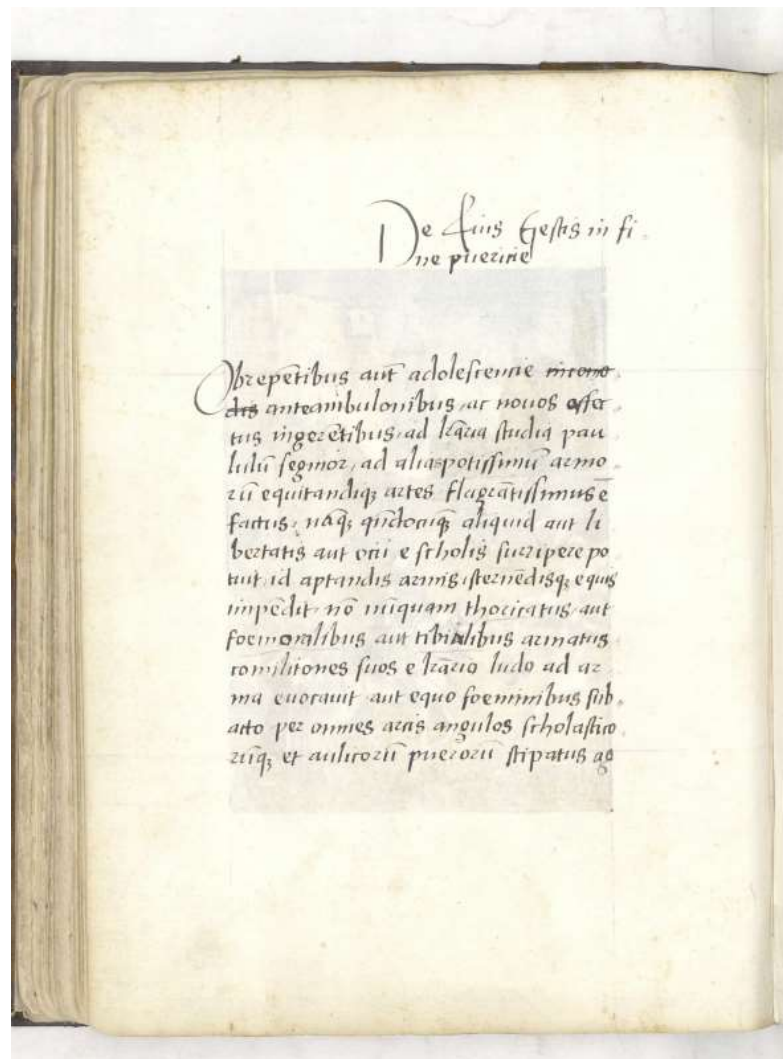 De Eius Gestis in fi
ne puericie
Obrepētibus aut̄ adolescencie incomo
dis anteambulonibus, ac nouos affec
tus ingerētibus, ad lr̄aria studia pau
lulū segnior, ad alias potissimū armo
rū equitandiq; artes flagrātissimus ē
factus, nāq; qn̄docūq; aliquid aut li
bertatis aut ocii e scholis surripere po
tuit, id aptandis armis, sternēdisq; equis
impēdit, nō nūquam thoricatus, aut
foemoralibus aut tibialibus armatus
comilitones suos e lr̄ario ludo ad ar
ma euocauit aut equo foeminibus sub
acto per omnes arcis angulos scholastico
rūq; et aulicorū puerorū stipatus ag